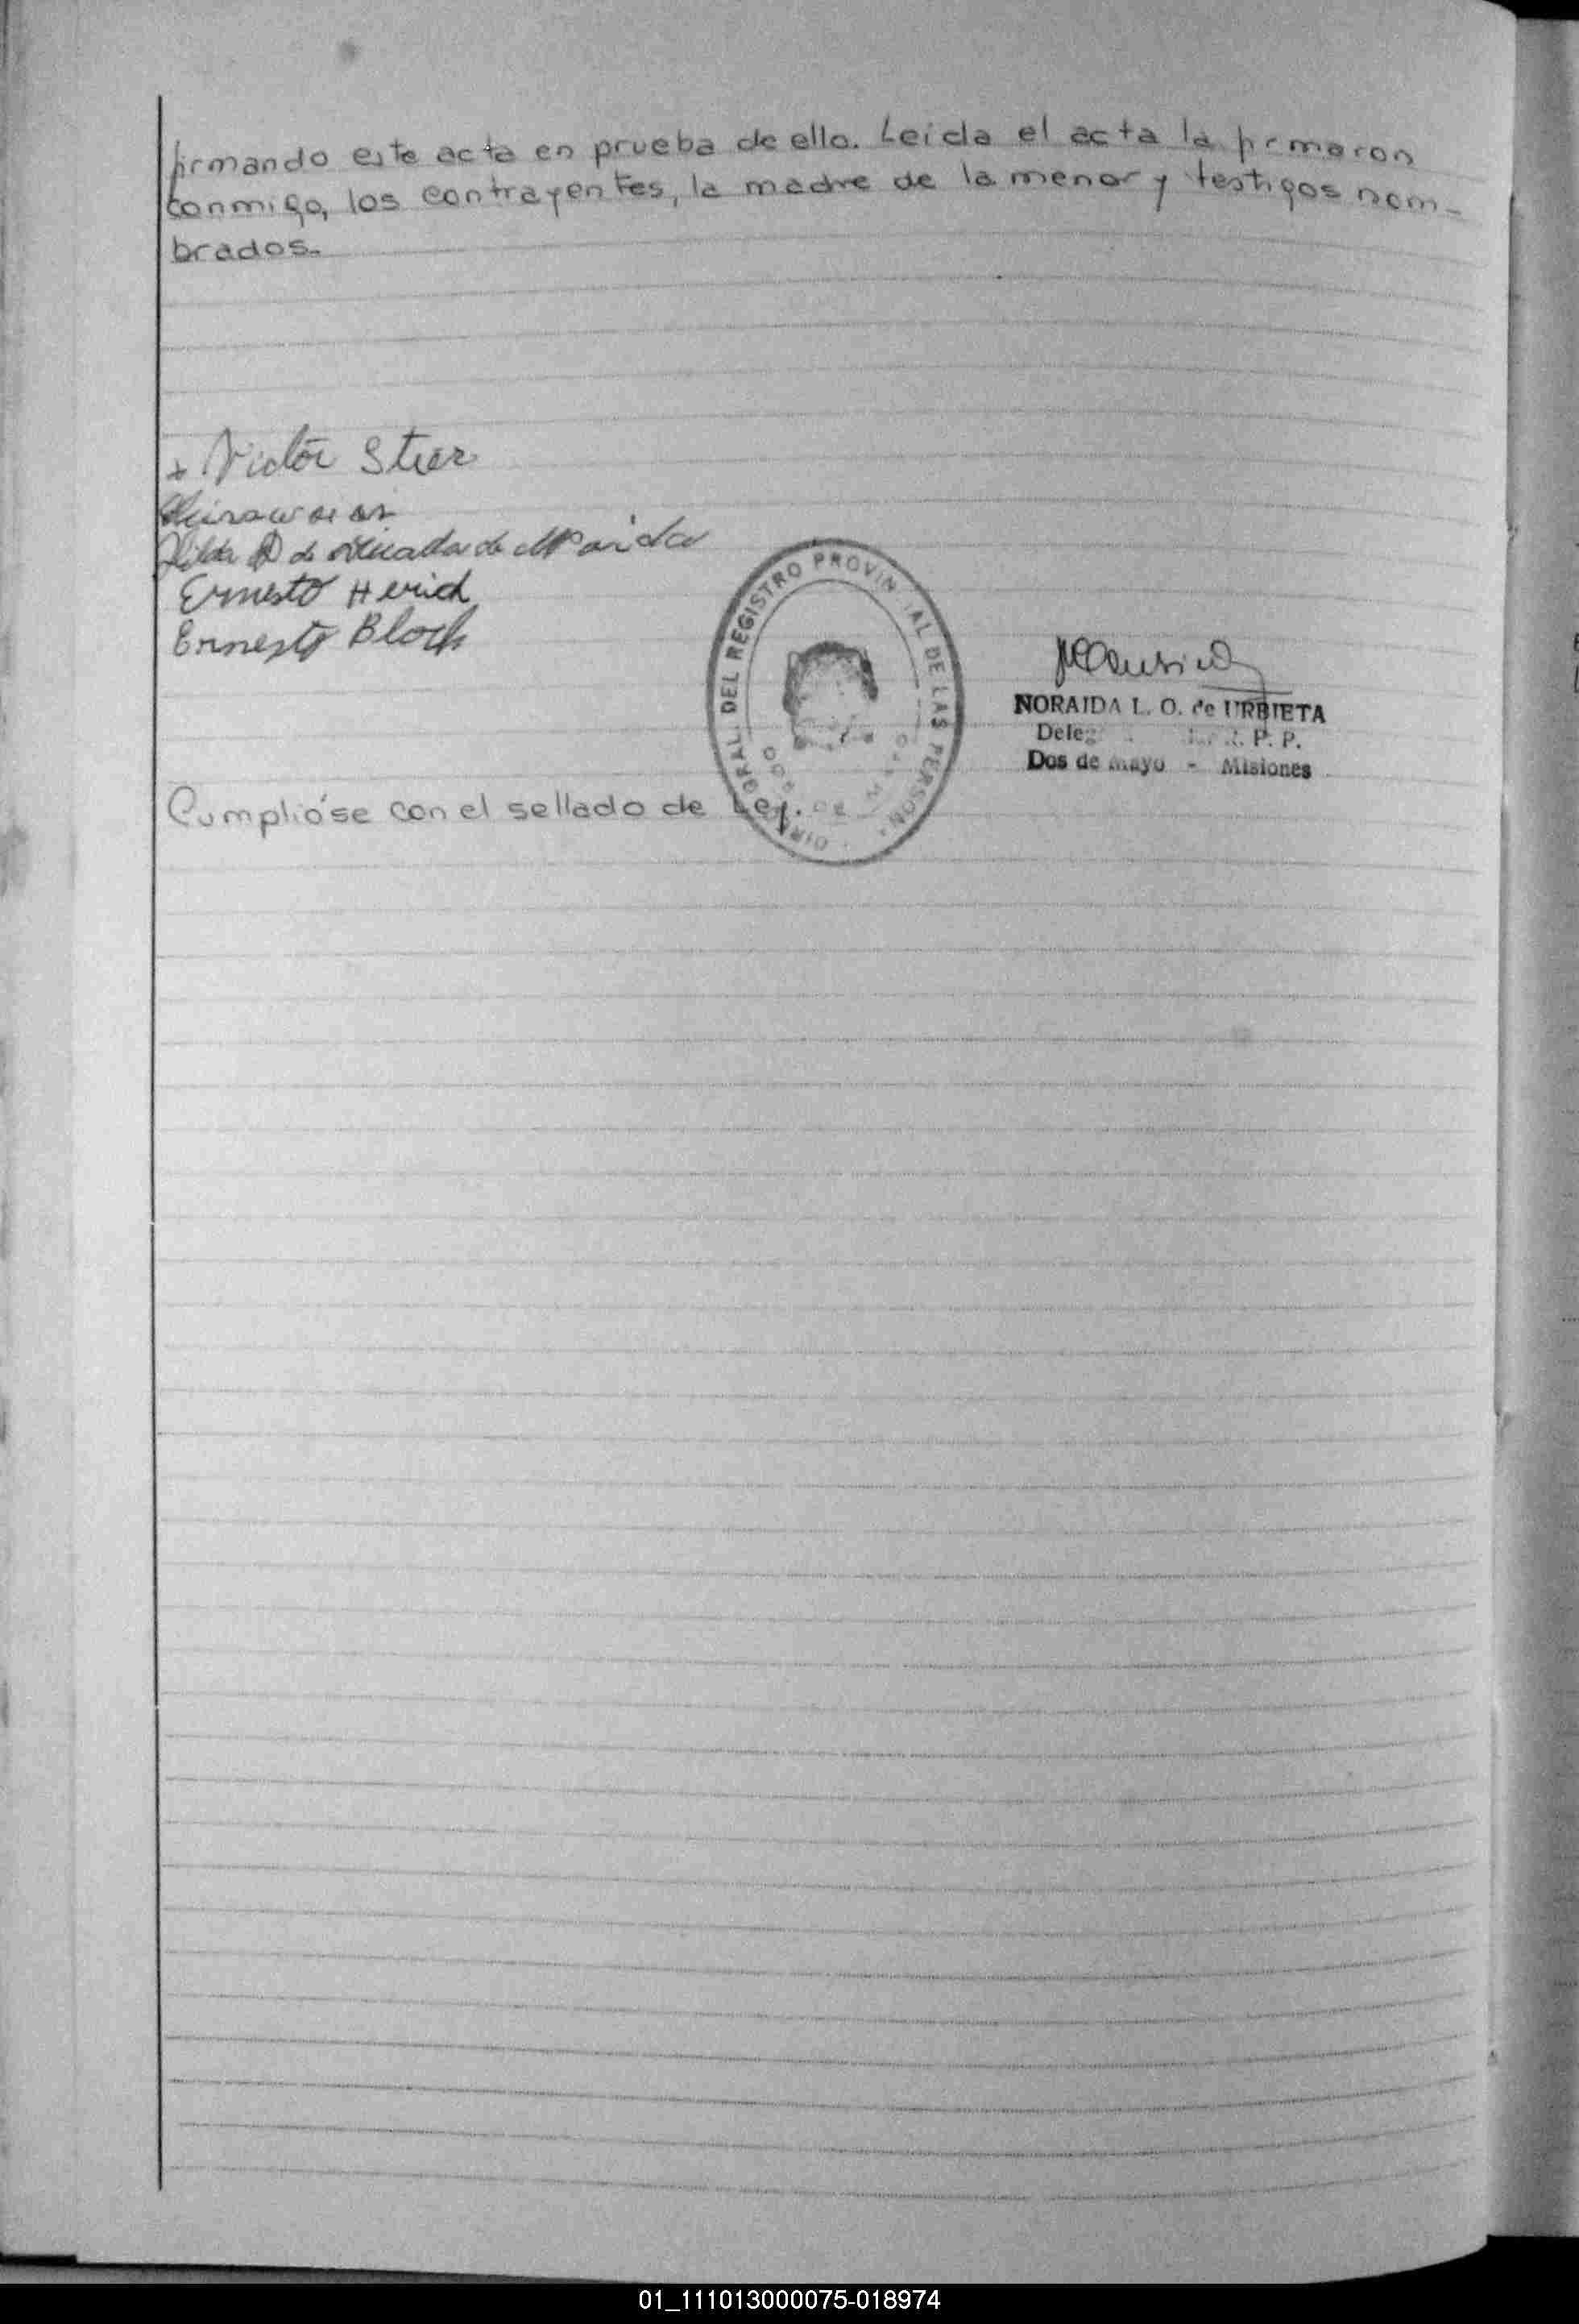 firmando este acta en prueba de ello. Leida el acta la firmaron
conmigo, los contrayentes, la madre de la menor y testigos nom-
brados.
Victor Stier
Hilda de de
Ernesto Herich
Ernesto Bloch
DIR. GRAL. DEL REGISTRO PROVINCIAL DE LAS PERSON.
NORAIDA L. O. de URBIETA
P. P.
Dos de Mayo - Misiones
Cumplióse con el sellado de Ley.
01_111013000075-018974